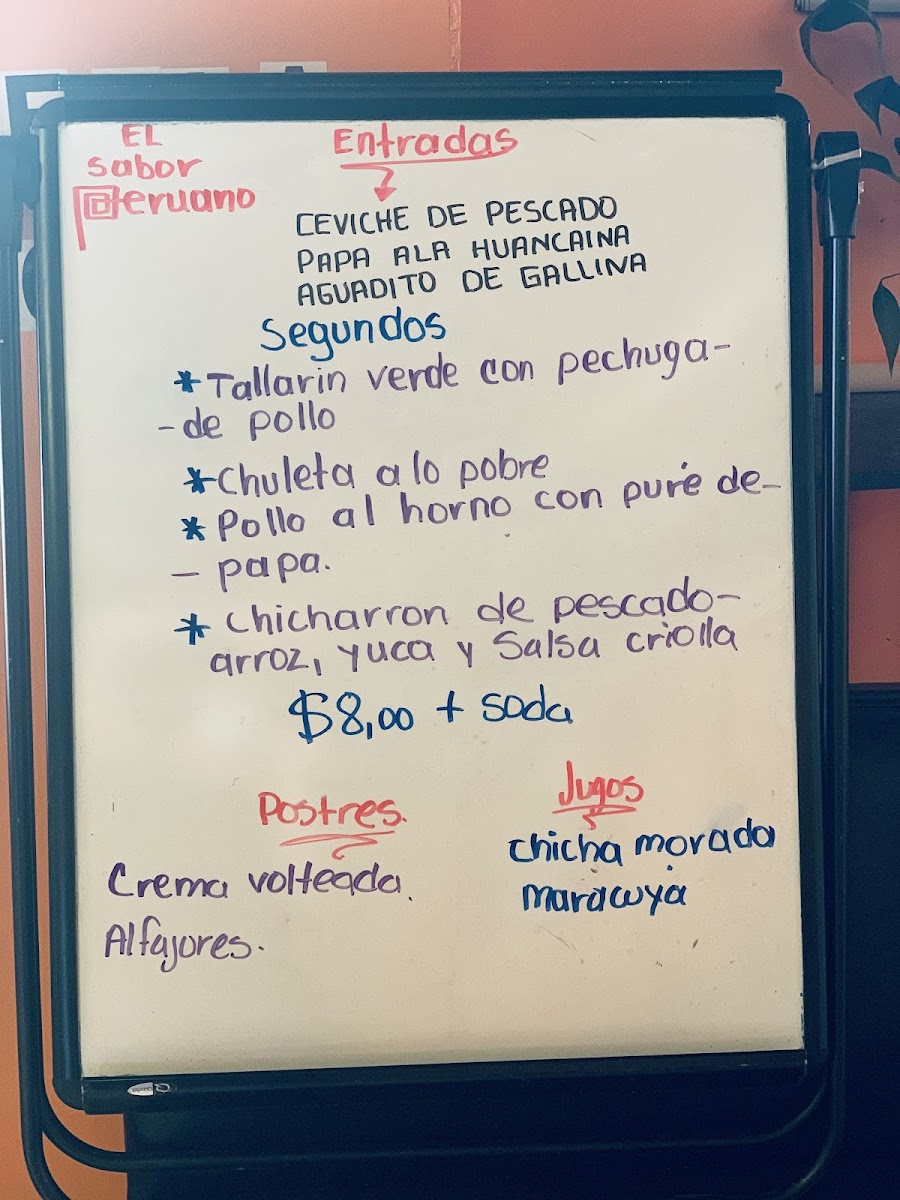 EL
sabor
Peruano
Entradas
CEVICHE DE PESCADO
PAPA ALA HUANCAINA
AGUADITO DE GALLINA
Segundos
*Tallarin verde con pechuga-
-de pollo
*Chuleta a lo pobre
* Pollo al horno con puré de-
- papa.
* Chicharron de pescado-
arroz, yuca y Salsa criolla
$8,00 + soda
Postres.
Crema volteada.
Alfajores.
Jugos
chicha morada
maracuya